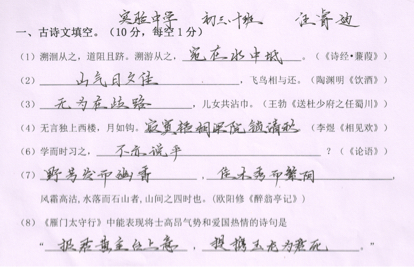 实验中学 初三、十班 汪睿迪
一、古诗文填空。（10分，每空1分）
（1）溯洄从之，道阻且跻。溯游从之，宛在水中坻。（《诗经·蒹葭》）
（2）山气日夕佳，飞鸟相与还。（陶渊明《饮酒》）
（3）无为在歧路，儿女共沾巾。（王勃《送杜少府之任蜀川》）
（4）无言独上西楼，月如钩。寂寞梧桐深院锁清秋（李煜《相见欢》）
（6）学而时习之，不亦说乎？（《论语》）
（7）野芳发而幽香，佳木秀而繁阴，
风霜高洁，水落而石山者，山间之四时也。（欧阳修《醉翁亭记》）
（8）《雁门太守行》中能表现将士高昂气势和爱国热情的诗句是
“报君黄金台上意，提携玉龙为君死。”